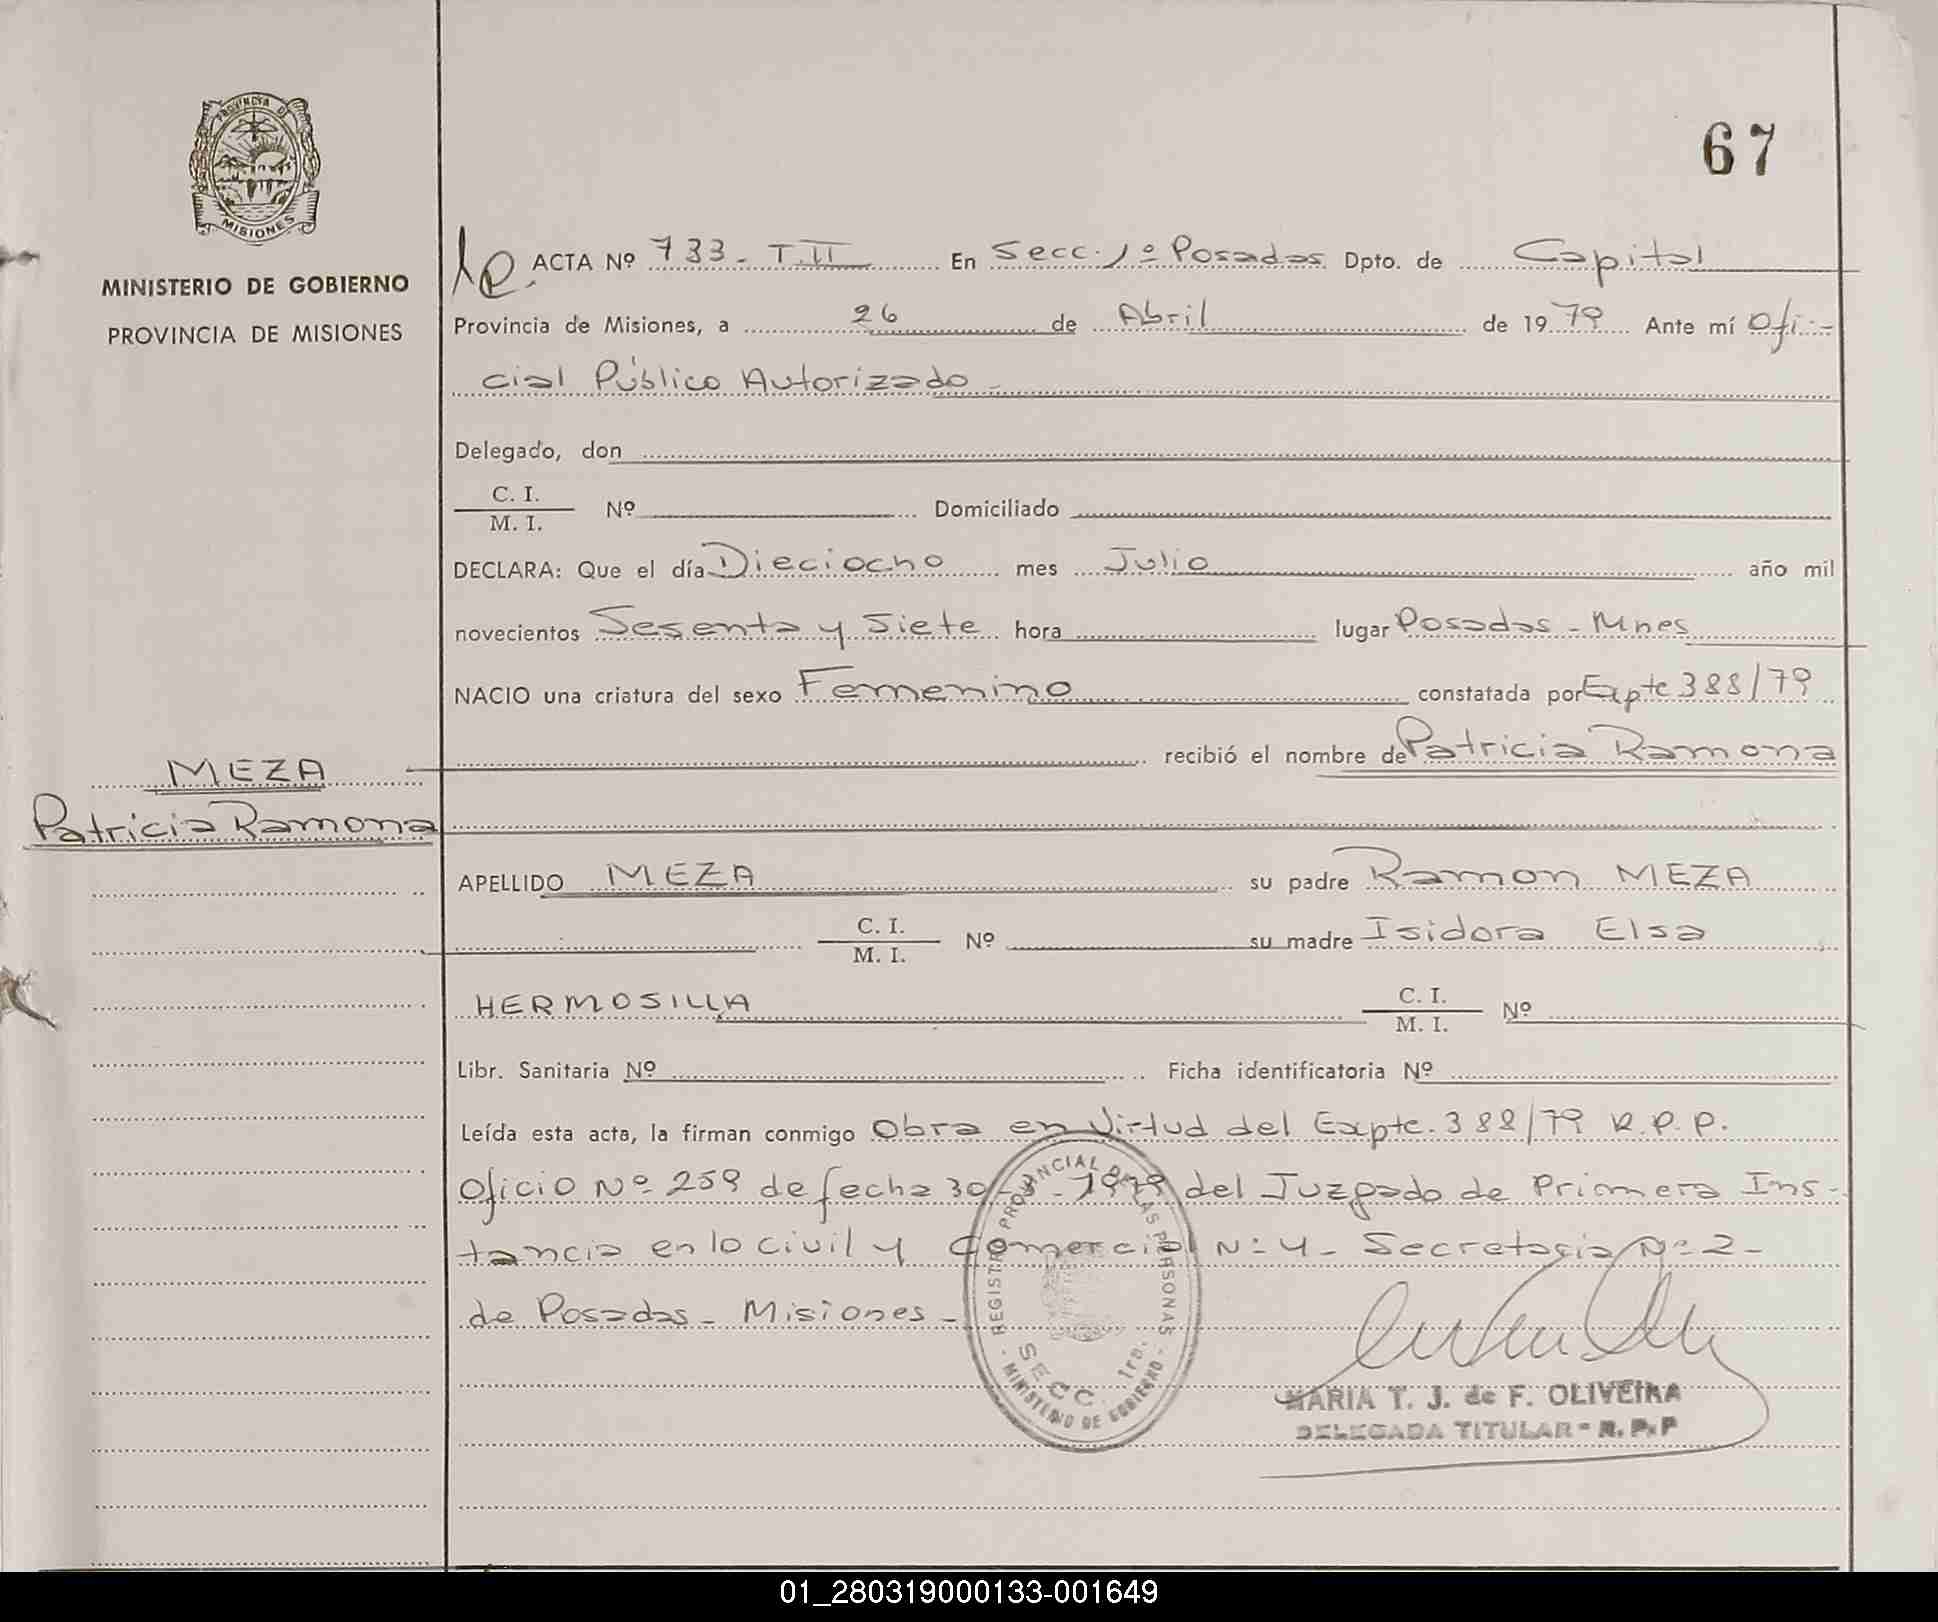 67
PROVINCIA DE
MISIONES
MINISTERIO DE GOBIERNO
PROVINCIA DE MISIONES
ACTA Nº 733 - T. II En Secc. 1º Posadas Dpto. de Capital
Provincia de Misiones, a 26 de Abril de 1979 Ante mí Ofi-
cial Público Autorizado -
Delegado, don
C. I.
M. I.
Nº Domiciliado
DECLARA: Que el día Dieciocho mes Julio año mil
novecientos Sesenta y Siete hora lugar Posadas - Mnes
NACIO una criatura del sexo Femenino constatada por Expte 388/79
recibió el nombre de Patricia Ramona
MEZA
Patricia Ramona
APELLIDO MEZA su padre Ramon MEZA
C. I.
M. I.
Nº su madre Isidora Elsa
HERMOSILLA
C. I.
M. I.
Nº
Libr. Sanitaria Nº Ficha identificatoria Nº
Leída esta acta, la firman conmigo Obra en Virtud del Expte. 388/79 R.P.P.
Oficio Nº 259 de fecha 30-3-1979 del Juzgado de Primera Ins-
tancia en lo Civil y Comercial Nº 4 - Secretaria Nº 2 -
de Posadas - Misiones -
REGISTRO PROVINCIAL DE LAS PERSONAS
SECC. 1ra.
- MINISTERIO DE GOBIERNO -
MARIA T. J. de F. OLIVEIRA
DELEGADA TITULAR - R. P. P
01_280319000133-001649